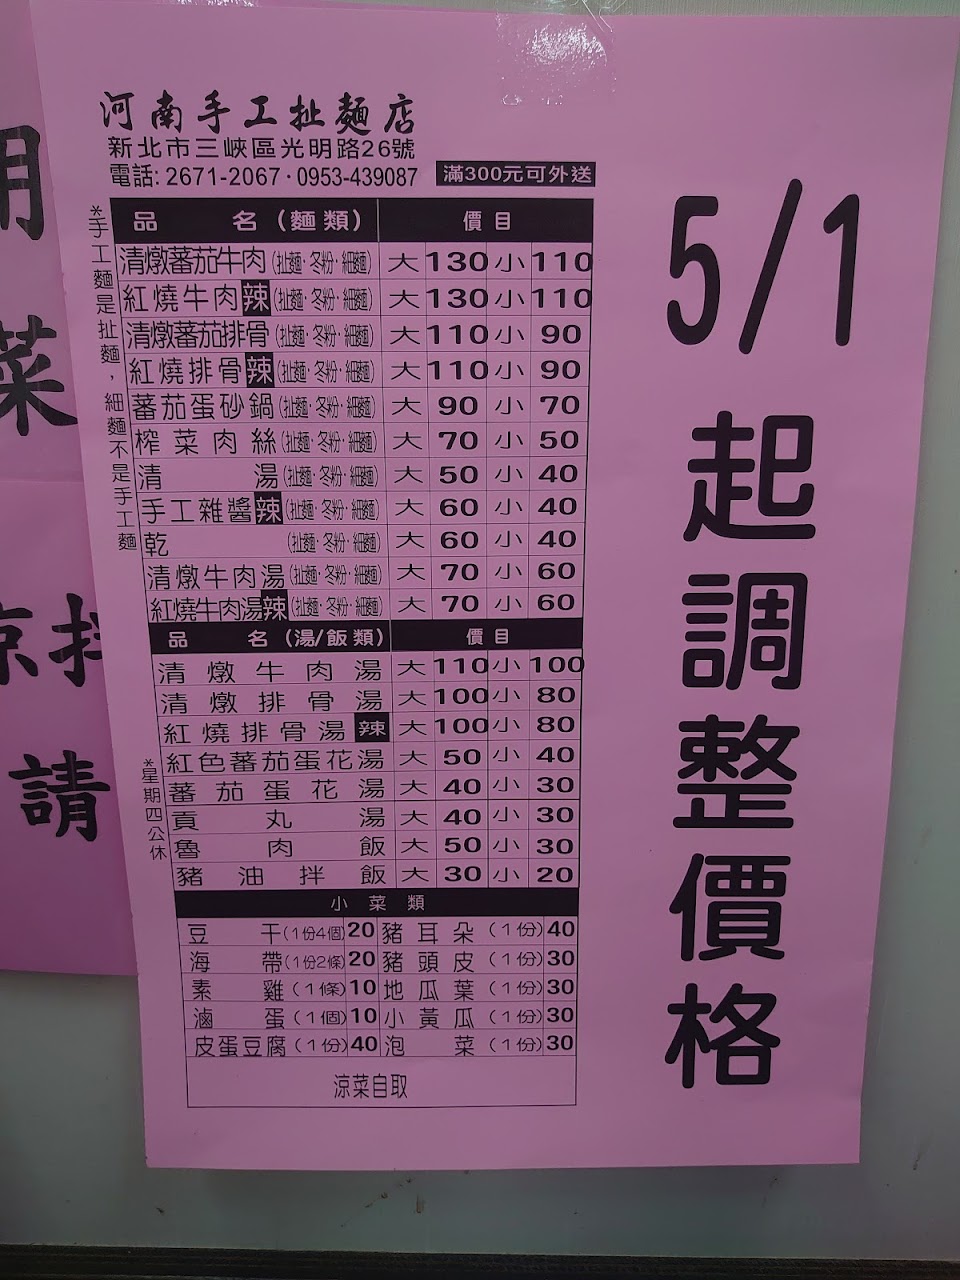 河南手工扯麵店
新北市三峽區光明路26號
電話: 2671-2067·0953-439087 滿300元可外送
*手工麵是扯麵，細麵不是手工麵
品 名(麵類) 價目
清燉蕃茄牛肉(扯麵·冬粉·細麵) 大 130 小 110
紅燒牛肉辣(扯麵·冬粉·細麵) 大 130 小 110
清燉蕃茄排骨(扯麵·冬粉·細麵) 大 110 小 90
紅燒排骨辣(扯麵·冬粉·細麵) 大 110 小 90
蕃茄蛋砂鍋(扯麵·冬粉·細麵) 大 90 小 70
榨菜肉絲(扯麵·冬粉·細麵) 大 70 小 50
清湯(扯麵·冬粉·細麵) 大 50 小 40
手工雜醬辣(扯麵·冬粉·細麵) 大 60 小 40
乾(扯麵·冬粉·細麵) 大 60 小 40
清燉牛肉湯(扯麵·冬粉·細麵) 大 70 小 60
紅燒牛肉湯辣(扯麵·冬粉·細麵) 大 70 小 60
品 名(湯/飯類) 價目
清燉牛肉湯 大 110 小 100
清燉排骨湯 大 100 小 80
紅燒排骨湯辣 大 100 小 80
紅色蕃茄蛋花湯 大 50 小 40
蕃茄蛋花湯 大 40 小 30
貢丸湯 大 40 小 30
魯肉飯 大 50 小 30
豬油拌飯 大 30 小 20
*星期四公休
小菜類
豆干(1份4個) 20 豬耳朵(1份) 40
海帶(1份2條) 20 豬頭皮(1份) 30
素雞(1條) 10 地瓜葉(1份) 30
滷蛋(1個) 10 小黃瓜(1份) 30
皮蛋豆腐(1份) 40 泡菜(1份) 30
涼菜自取
5/1起調整價格
菜
涼拌
請